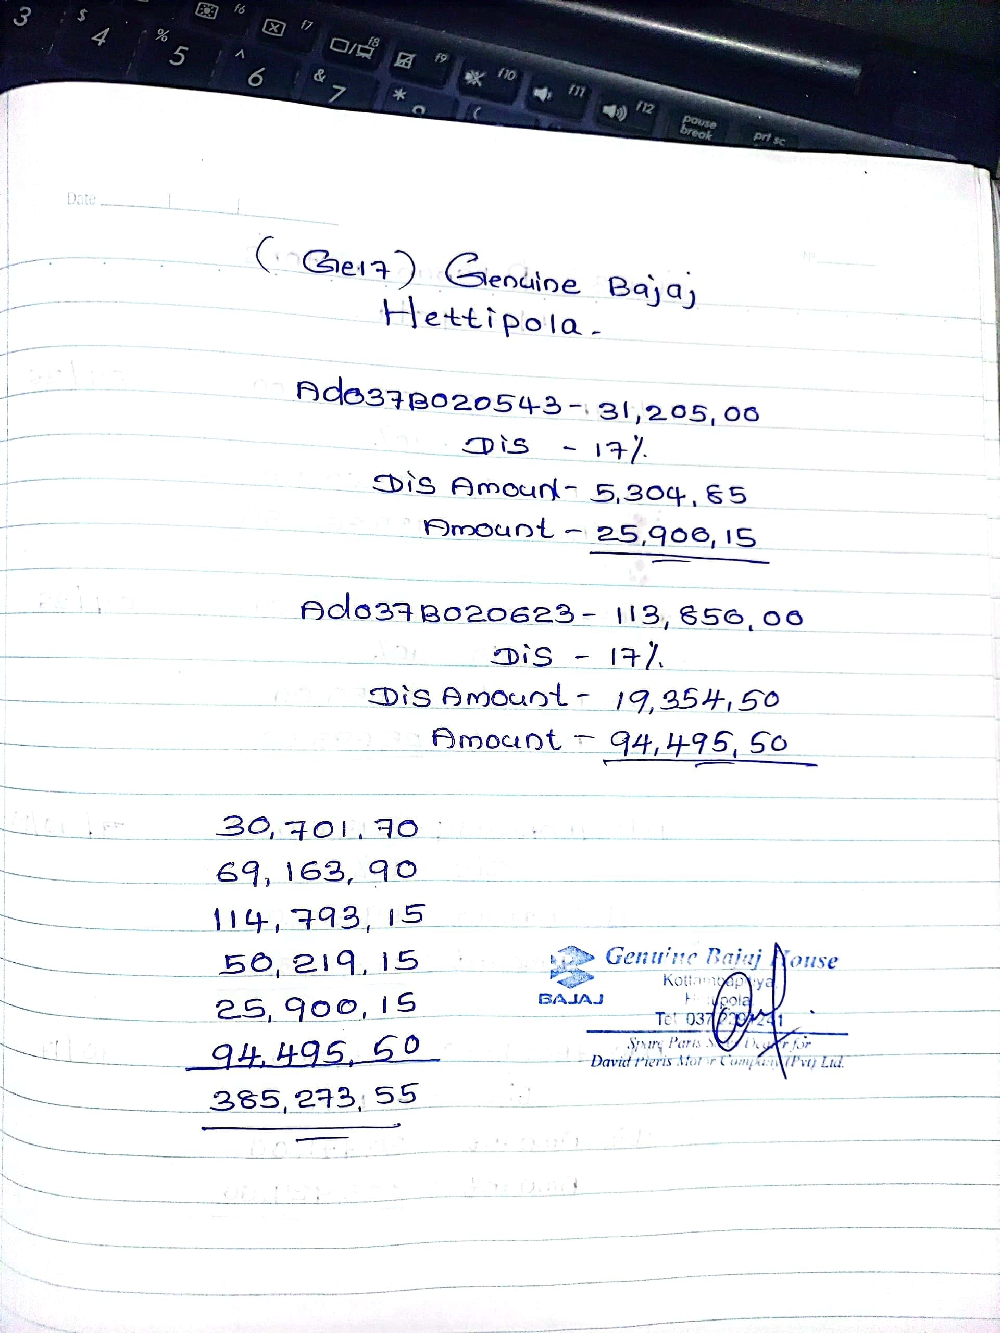 3 $ 4 % 5 ^ 6 & 7 *
f6 f7 f8 f9 f10 f11 f12 pause break prt sc
Date
(Ge17) Genuine Bajaj
Hettipola -
Ad037B020543 - 31,205,00
Dis - 17%
Dis Amount - 5,304,85
Amount - 25,900,15
Ad037B020623 - 113,850,00
Dis - 17%
Dis Amount - 19,354,50
Amount - 94,495,50
30,701.70
69,163,90
114,793,15
50,219,15
25,900,15
94,495,50
385,273,55
Genuine Bajaj House
BAJAJ
Tel 037
Spare Parts
David Pieris Motor Company (Pvt) Ltd.